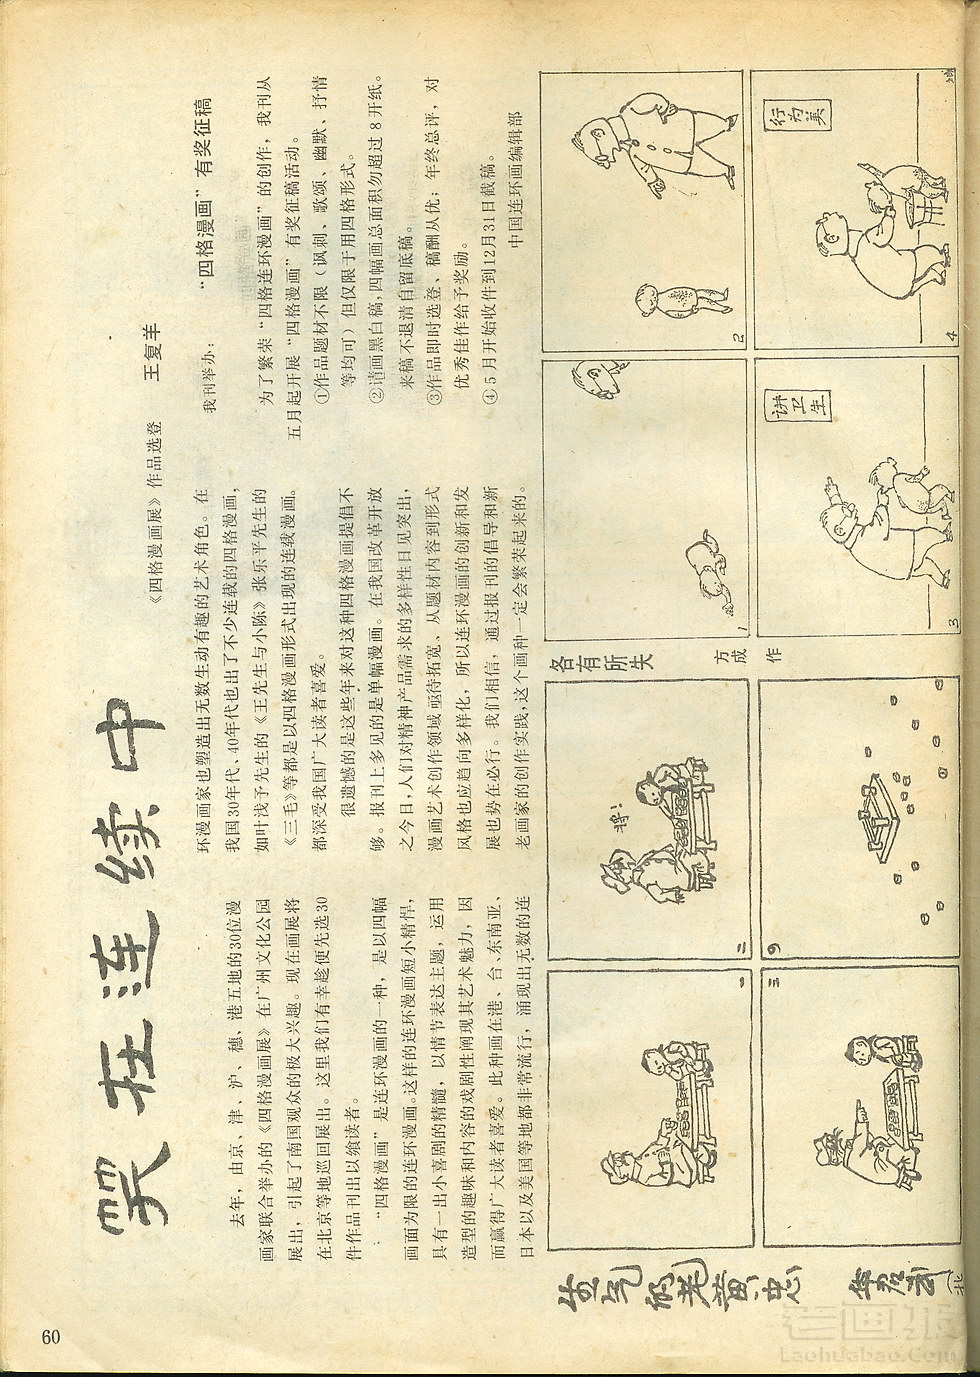 笑在连续中
《四格漫画展》作品选登
王复羊
去年，由京、津、沪、穗、港五地的30位漫
画家联合举办的《四格漫画展》在广州文化公园
展出，引起了南国观众的极大兴趣。现在画展将
在北京等地巡回展出。这里我们有幸趁便先选30
件作品刊出以飨读者。
“四格漫画”是连环漫画的一种，是以四幅
画面为限的连环漫画。这样的连环漫画短小精悍，
具有一出小喜剧的精髓，以情节表达主题，运用
造型的趣味和内容的戏剧性阐现其艺术魅力，因
而赢得广大读者喜爱。此种画在港、台、东南亚、
日本以及美国等地都非常流行，涌现出无数的连
环漫画家也塑造出无数生动有趣的艺术角色。在
我国30年代、40年代也出了不少连载的四格漫画，
如叶浅予先生的《王先生与小陈》张乐平先生的
《三毛》等都是以四格漫画形式出现的连续漫画。
都深受我国广大读者喜爱。
很遗憾的是这些年来对这种四格漫画提倡不
够。报刊上多见的是单幅漫画。在我国改革开放
之今日，人们对精神产品需求的多样性日见突出，
漫画艺术创作领域亟待拓宽、从题材内容到形式
风格也应趋向多样化，所以连环漫画的创新和发
展也势在必行。我们相信，通过报刊的倡导和新
老画家的创作实践，这个画种一定会繁荣起来的。
我刊举办：
“四格漫画”有奖征稿
为了繁荣“四格连环漫画”的创作，我刊从
五月起开展“四格漫画”有奖征稿活动。
①作品题材不限（讽刺、歌颂、幽默、抒情
等均可）但仅限于用四格形式。
②请画黑白稿，四幅画总面积勿超过8开纸。
来稿不退清自留底稿。
③作品即时选登、稿酬从优；年终总评，对
优秀佳作给予奖励。
④5月开始收件到12月31日截稿。
中国连环画编辑部
生气的老黄忠
华君武
（北
一
二
将！
三
四
各有所失
方成 作
1
2
3
讲卫生
4
行为美
60
老画报
Laohuabao.Com